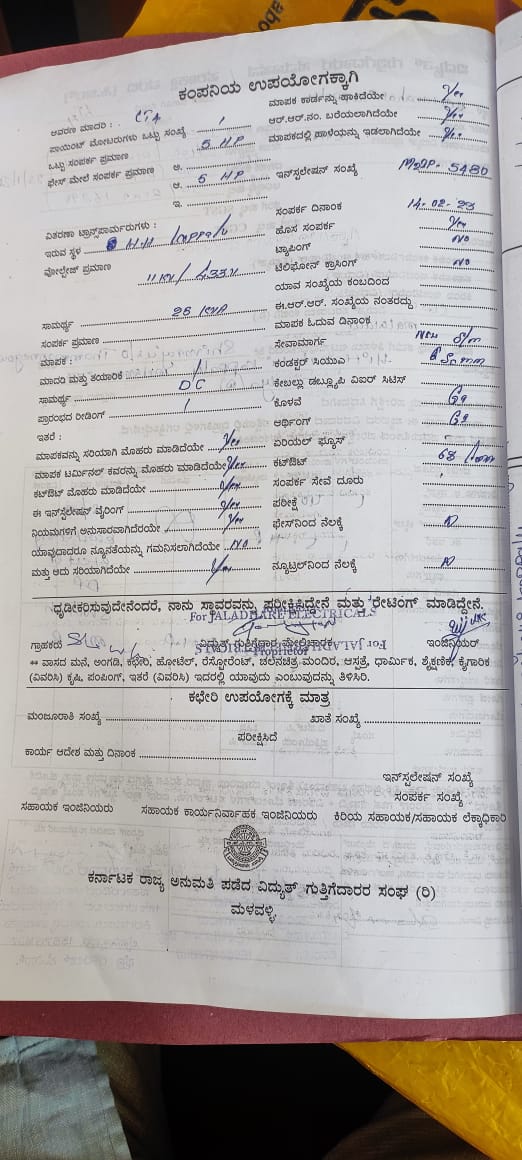 ಕಂಪನಿಯ ಉಪಯೋಗಕ್ಕಾಗಿ
ಆವರಣ ಮಾದರಿ :
ಮಾಪಕ ಕಾರ್ಡನ್ನು ಹಾಕಿದೆಯೇ Yes
ಪಾಯಿಂಟ್ ಮೋಟರುಗಳು ಒಟ್ಟು ಸಂಖ್ಯೆ 1
ಆರ್.ಆರ್.ನಂ. ಬರೆಯಲಾಗಿದೆಯೇ Yes
ಒಟ್ಟು ಸಂಪರ್ಕ ಪ್ರಮಾಣ 5 HP
ಮಾಪಕದಲ್ಲಿ ಹಾಳೆಯನ್ನು ಇಡಲಾಗಿದೆಯೇ Yes
ಫೇಸ್ ಮೇಲೆ ಸಂಪರ್ಕ ಪ್ರಮಾಣ ಅ.
ಆ. 5 HP
ಇ.
ಇನ್‌ಸ್ಟಲೇಷನ್ ಸಂಖ್ಯೆ 5480
ಸಂಪರ್ಕ ದಿನಾಂಕ 14-02-23
ವಿತರಣಾ ಟ್ರಾನ್ಸ್‌ಪಾರ್ಮರುಗಳು :
ಹೊಸ ಸಂಪರ್ಕ Yes
ಇರುವ ಸ್ಥಳ
ಟ್ಯಾಪಿಂಗ್ NO
ವೋಲ್ಟೇಜ್ ಪ್ರಮಾಣ 11 KV / 433 V
ಟೆಲಿಫೋನ್ ಕ್ರಾಸಿಂಗ್ NO
ಯಾವ ಸಂಖ್ಯೆಯ ಕಂಬದಿಂದ
ಈ.ಆರ್.ಆರ್. ಸಂಖ್ಯೆಯ ನಂತರದ್ದು
ಸಾಮರ್ಥ್ಯ 25 KVA
ಮಾಪಕ ಓದುವ ದಿನಾಂಕ
ಸಂಪರ್ಕ ಪ್ರಮಾಣ
ಸೇವಾಮಾರ್ಗ New S/m
ಮಾಪಕ : 1
ಕಂಡಕ್ಟರ್ ಸಿಯುಎ
ಮಾದರಿ ಮತ್ತು ತಯಾರಿಕೆ
ಕೇಬಲ್ಲು ಡಬ್ಲ್ಯೂಪಿ ಏಐರ್ ಸಿಟಿಸ್
ಸಾಮರ್ಥ್ಯ DC
ಕೊಳವೆ GI
ಪ್ರಾರಂಭದ ರೀಡಿಂಗ್ 1
ಆರ್ಥಿಂಗ್ GI
ಇತರೆ :
ಏರಿಯಲ್ ಫ್ಯೂಸ್
ಮಾಪಕವನ್ನು ಸರಿಯಾಗಿ ಮೊಹರು ಮಾಡಿದೆಯೇ Yes
ಕಟ್‌ಔಟ್
ಮಾಪಕ ಟರ್ಮಿನಲ್ ಕವರನ್ನು ಮೊಹರು ಮಾಡಿದೆಯೇ Yes
ಸಂಪರ್ಕ ಸೇವೆ ದೂರು
ಕಟ್‌ಔಟ್ ಮೊಹರು ಮಾಡಿದೆಯೇ Yes
ಪರೀಕ್ಷೆ
ಈ ಇನ್‌ಸ್ಟಲೇಷನ್ ವೈರಿಂಗ್ Yes
ಫೇಸ್‌ನಿಂದ ನೆಲಕ್ಕೆ
ನಿಯಮಗಳಿಗೆ ಅನುಸಾರವಾಗಿದೆರಯೇ Yes
ಯಾವುದಾದರೂ ನ್ಯೂನತೆಯನ್ನು ಗಮನಿಸಲಾಗಿದೆಯೇ NO
ಮತ್ತು ಅದು ಸರಿಯಾಗಿದೆಯೇ Yes
ನ್ಯೂಟ್ರಲ್‌ನಿಂದ ನೆಲಕ್ಕೆ
ಧೃಡೀಕರಿಸುವುದೇನೆಂದರೆ, ನಾನು ಸ್ಥಾವರವನ್ನು ಪರೀಕ್ಷಿಸಿದ್ದೇನೆ ಮತ್ತು ರೇಟಿಂಗ್ ಮಾಡಿದ್ದೇನೆ.
For JALADHARE ELECTRICALS
ಗ್ರಾಹಕರು ವಿದ್ಯುತ್ ಗುತ್ತಿಗೆದಾರ ಮೇಲ್ವಿಚಾರಕ ಇಂಜಿನಿಯರ್
Proprietor
** ವಾಸದ ಮನೆ, ಅಂಗಡಿ, ಕಛೇರಿ, ಹೋಟೆಲ್, ರೆಸ್ಟೋರೆಂಟ್, ಚಲನಚಿತ್ರ ಮಂದಿರ, ಆಸ್ಪತ್ರೆ, ಧಾರ್ಮಿಕ, ಶೈಕ್ಷಣಿಕ, ಕೈಗಾರಿಕ
(ವಿವರಿಸಿ) ಕೃಷಿ, ಪಂಪಿಂಗ್, ಇತರೆ (ವಿವರಿಸಿ) ಇದರಲ್ಲಿ ಯಾವುದು ಎಂಬುವನ್ನು ತಿಳಿಸಿರಿ.
ಕಛೇರಿ ಉಪಯೋಗಕ್ಕೆ ಮಾತ್ರ
ಮಂಜೂರಾತಿ ಸಂಖ್ಯೆ ಖಾತೆ ಸಂಖ್ಯೆ
ಪರೀಕ್ಷಿಸಿದೆ
ಕಾರ್ಯ ಆದೇಶ ಮತ್ತು ದಿನಾಂಕ
ಇನ್‌ಸ್ಟಲೇಷನ್ ಸಂಖ್ಯೆ
ಸಂಪರ್ಕ ಸಂಖ್ಯೆ
ಸಹಾಯಕ ಇಂಜಿನಿಯರು ಸಹಾಯಕ ಕಾರ್ಯನಿರ್ವಾಹಕ ಇಂಜಿನಿಯರು ಕಿರಿಯ ಸಹಾಯಕ/ಸಹಾಯಕ ಲೆಕ್ಕಾಧಿಕಾರಿ
ಕರ್ನಾಟಕ ರಾಜ್ಯ ಅನುಮತಿ ಪಡೆದ ವಿದ್ಯುತ್ ಗುತ್ತಿಗೆದಾರರ ಸಂಘ (ರಿ)
ಮಳವಳ್ಳಿ.